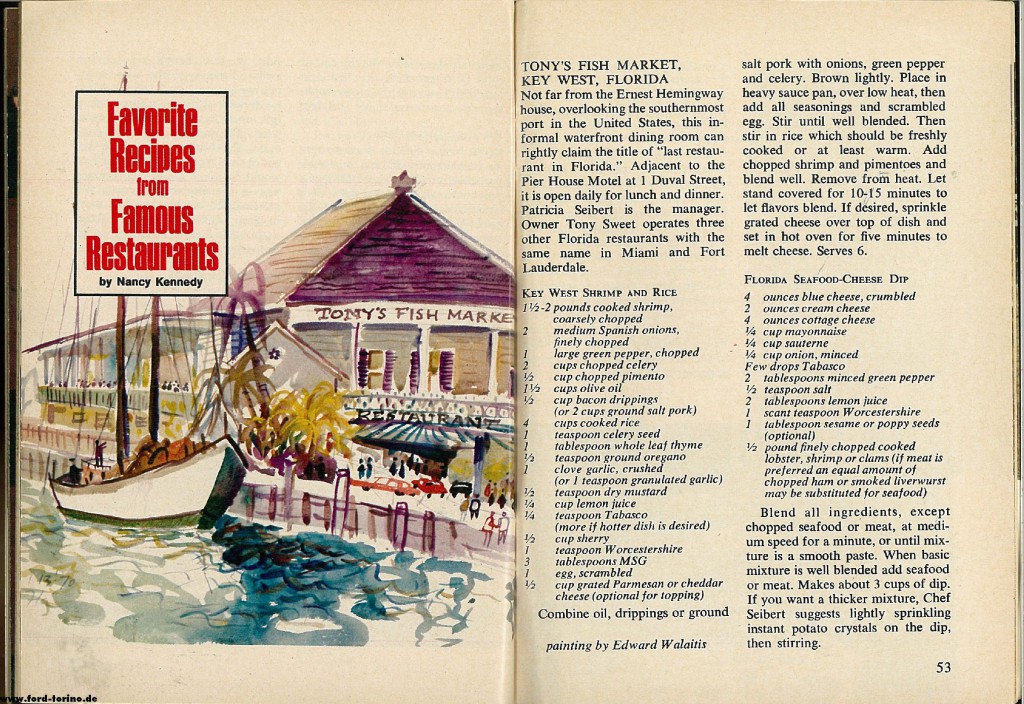 Favorite
Recipes
from
Famous
Restaurants
by Nancy Kennedy
TONY'S FISH MARKE
RESTAURANT
TONY'S FISH MARKET,
KEY WEST, FLORIDA
Not far from the Ernest Hemingway
house, overlooking the southernmost
port in the United States, this in-
formal waterfront dining room can
rightly claim the title of "last restau-
rant in Florida." Adjacent to the
Pier House Motel at 1 Duval Street,
it is open daily for lunch and dinner.
Patricia Seibert is the manager.
Owner Tony Sweet operates three
other Florida restaurants with the
same name in Miami and Fort
Lauderdale.
KEY WEST SHRIMP AND RICE
1½-2 pounds cooked shrimp,
coarsely chopped
2 medium Spanish onions,
finely chopped
1 large green pepper, chopped
2 cups chopped celery
½ cup chopped pimento
1½ cups olive oil
½ cup bacon drippings
(or 2 cups ground salt pork)
4 cups cooked rice
1 teaspoon celery seed
1 tablespoon whole leaf thyme
½ teaspoon ground oregano
1 clove garlic, crushed
(or 1 teaspoon granulated garlic)
½ teaspoon dry mustard
¼ cup lemon juice
¼ teaspoon Tabasco
(more if hotter dish is desired)
½ cup sherry
1 teaspoon Worcestershire
3 tablespoons MSG
1 egg, scrambled
½ cup grated Parmesan or cheddar
cheese (optional for topping)
Combine oil, drippings or ground
painting by Edward Walaitis
salt pork with onions, green pepper
and celery. Brown lightly. Place in
heavy sauce pan, over low heat, then
add all seasonings and scrambled
egg. Stir until well blended. Then
stir in rice which should be freshly
cooked or at least warm. Add
chopped shrimp and pimentoes and
blend well. Remove from heat. Let
stand covered for 10-15 minutes to
let flavors blend. If desired, sprinkle
grated cheese over top of dish and
set in hot oven for five minutes to
melt cheese. Serves 6.
FLORIDA SEAFOOD-CHEESE DIP
4 ounces blue cheese, crumbled
2 ounces cream cheese
4 ounces cottage cheese
¼ cup mayonnaise
¼ cup sauterne
¼ cup onion, minced
Few drops Tabasco
2 tablespoons minced green pepper
½ teaspoon salt
2 tablespoons lemon juice
1 scant teaspoon Worcestershire
1 tablespoon sesame or poppy seeds
(optional)
½ pound finely chopped cooked
lobster, shrimp or clams (if meat is
preferred an equal amount of
chopped ham or smoked liverwurst
may be substituted for seafood)
Blend all ingredients, except
chopped seafood or meat, at medi-
um speed for a minute, or until mix-
ture is a smooth paste. When basic
mixture is well blended add seafood
or meat. Makes about 3 cups of dip.
If you want a thicker mixture, Chef
Seibert suggests lightly sprinkling
instant potato crystals on the dip,
then stirring.
53
www.ford-torino.de